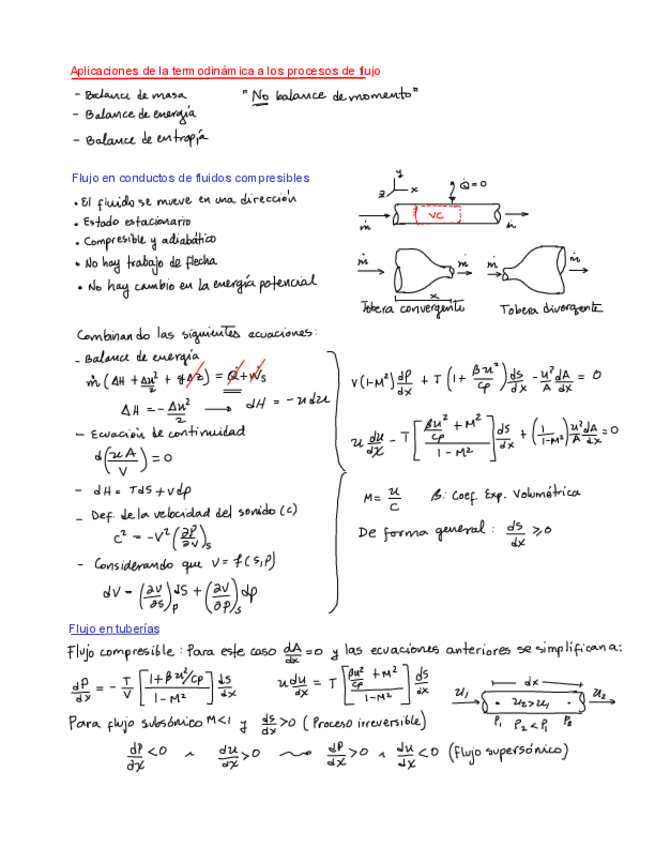 Aplicaciones de la termodinámica a los procesos de flujo
- Balance de masa "No balance de momento"
- Balance de energía
- Balance de entropía
Flujo en conductos de fluidos compresibles
• El fluido se mueve en una dirección
• Estado estacionario
• Compresible y adiabático
• No hay trabajo de flecha
• No hay cambio en la energía potencial
y
z x Q̇=0
VC
ṁ ṁ
ṁ ṁ ṁ ṁ
x
Tobera convergente Tobera divergente
Combinando las siguientes ecuaciones:
- Balance de energía
ṁ(ΔH + Δu²/2 + gΔz) = Q̇ + Ẇs
ΔH = -Δu²/2 → dH = -udu
- Ecuación de continuidad
d(uA/V) = 0
- dH = TdS + Vdp
- Def. de la velocidad del sonido (c)
c² = -V²(∂P/∂V)s
- Considerando que V = f(S,P)
dV = (∂V/∂S)p dS + (∂V/∂P)s dp
V(1-M²)dP/dx + T(1 + βu²/Cp)ds/dx - u²/A dA/dx = 0
u du/dx - T[(βu²/Cp + M²)/(1-M²)]ds/dx + (1/(1-M²))u²/A dA/dx = 0
M = u/c β: Coef. Exp. Volumétrica
De forma general: ds/dx ≥ 0
Flujo en tuberías
Flujo compresible: Para este caso dA/dx = 0 y las ecuaciones anteriores se simplifican a:
dP/dx = -T/V[(1+βu²/Cp)/(1-M²)]ds/dx u du/dx = T[(βu²/Cp + M²)/(1-M²)]ds/dx
dx
u₁ u₂>u₁ u₂
P₁ P₂<P₁ P₂
Para flujo subsónico M<1 y ds/dx >0 (Proceso irreversible)
dP/dx <0 ∧ du/dx >0 dP/dx >0 ∧ du/dx <0 (Flujo supersónico)